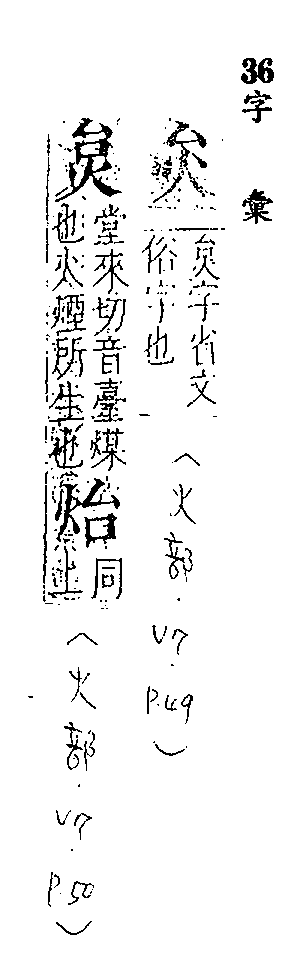 36字彙
炱字省文
俗字也
(火部.V7.P.49)
炱
堂來切音臺煤
也火煙所生也
炲
同
上
(火部.V7.P.50)